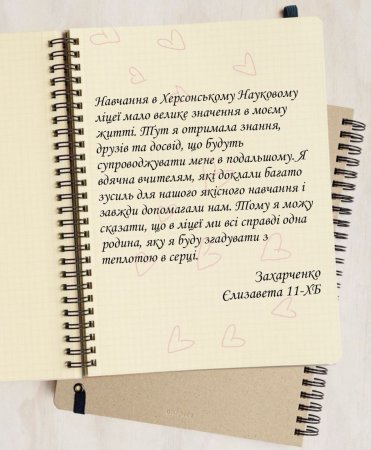 Навчання в Херсонському Науковому
ліцеї мало велике значення в моєму
житті. Тут я отримала знання,
друзів та досвід, що будуть
супроводжувати мене в подальшому. Я
вдячна вчителям, які доклали багато
зусиль для нашого якісного навчання і
завжди допомагали нам. Тому я можу
сказати, що в ліцеї ми всі справді одна
родина, яку я буду згадувати з
теплотою в серці.
Захарченко
Єлизавета 11-ХБ